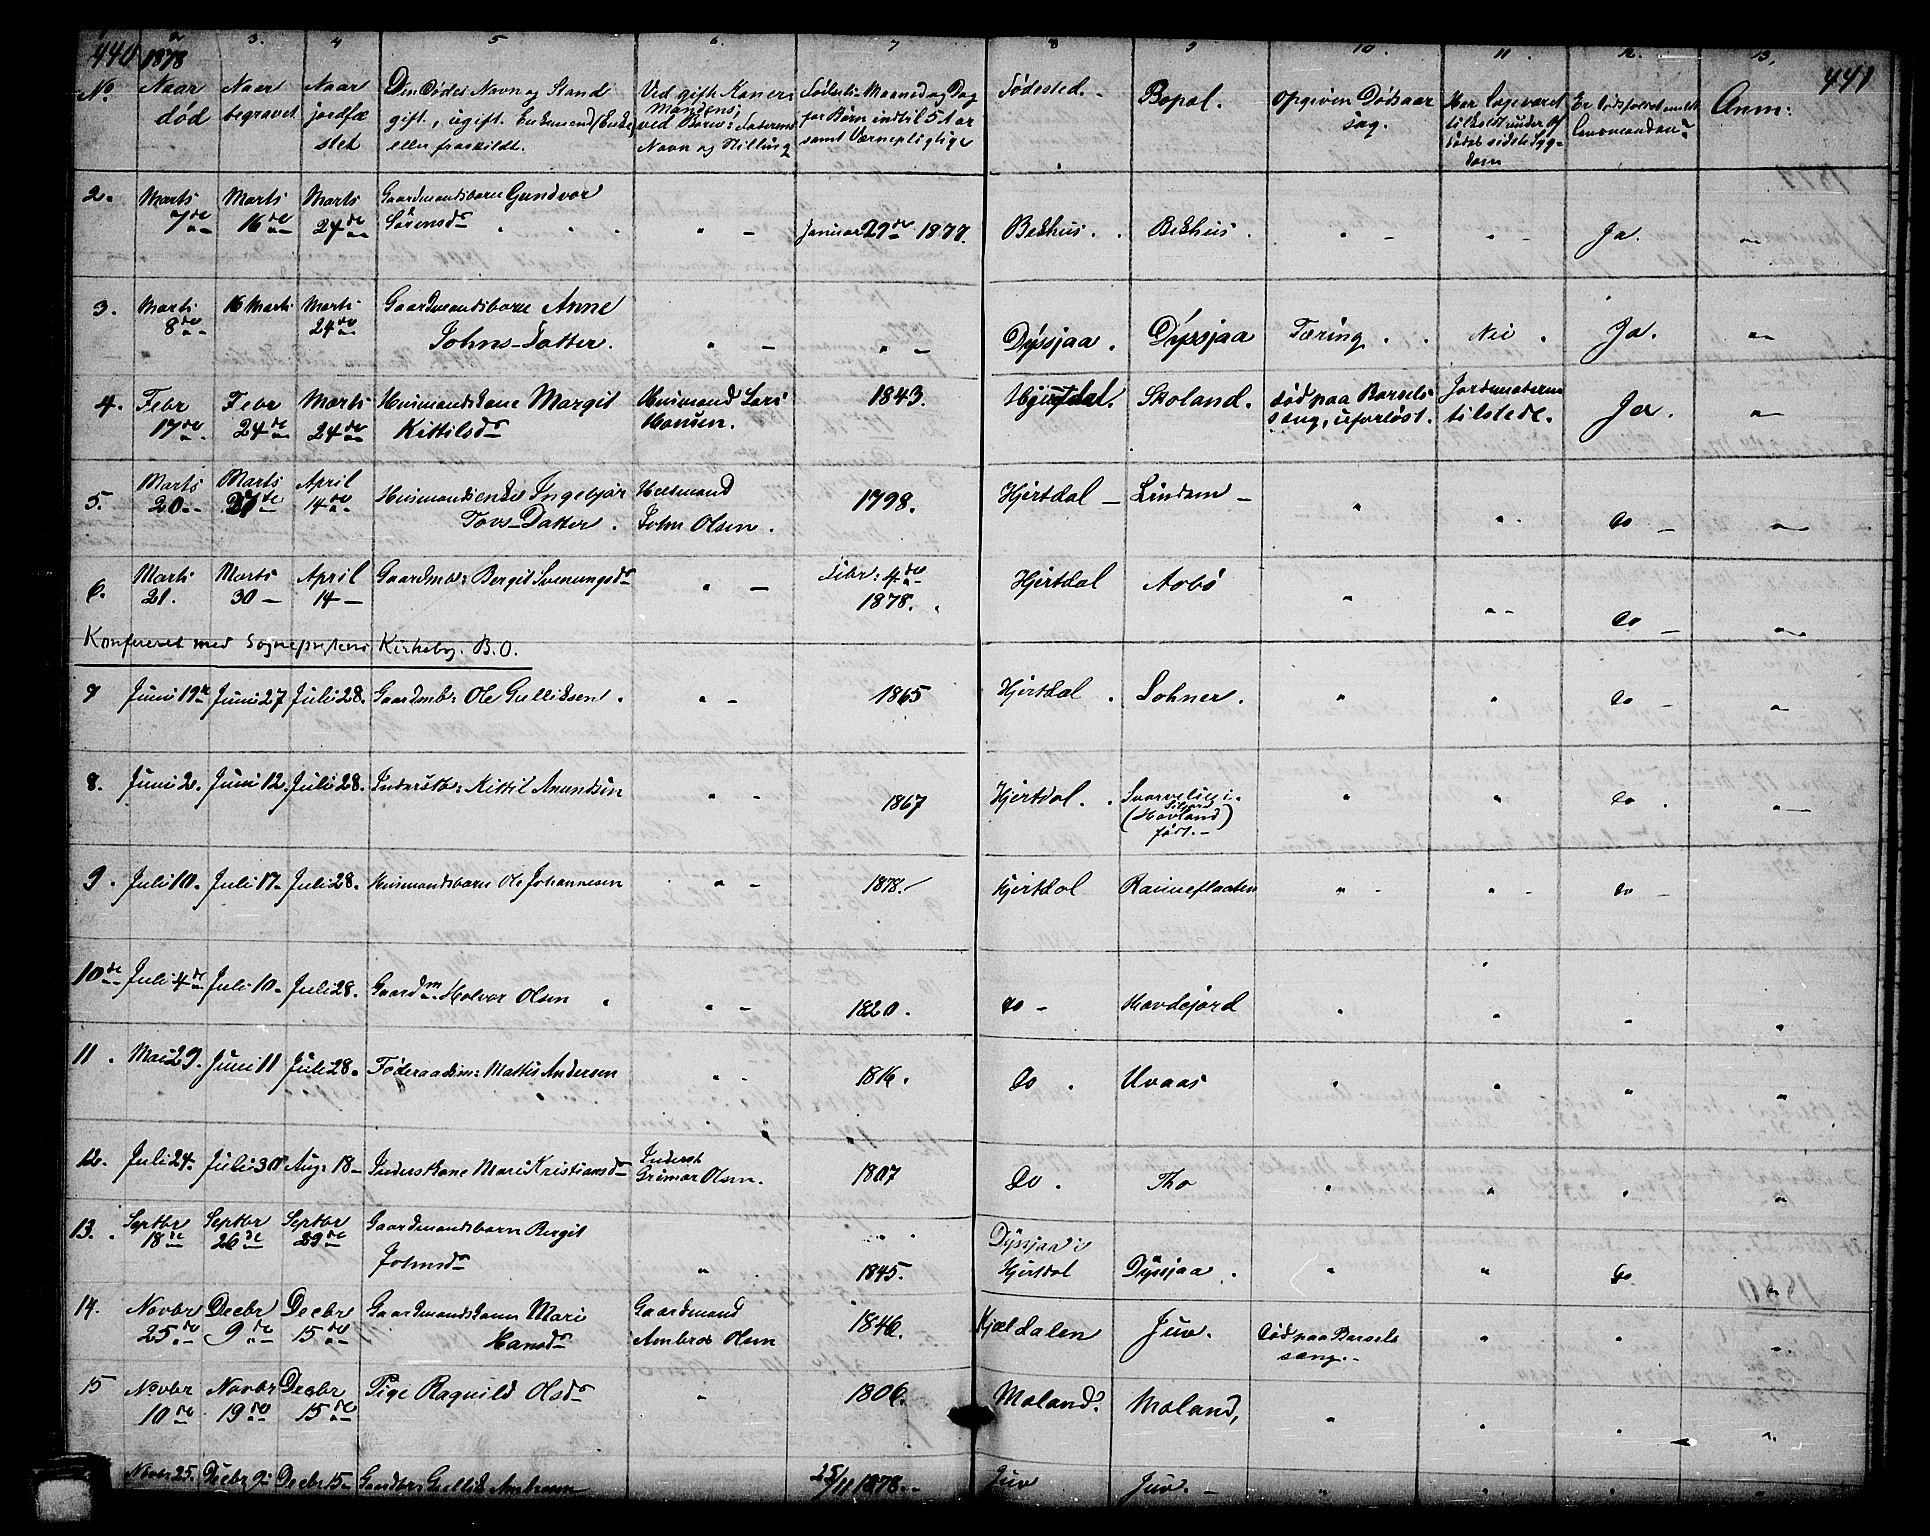 440 1878 3. 4 5 6. 7 8 9 10 11. 12. 13. 441
No Naar død Naar begravet Naar jordfæstet Den Dødes Navn og Stand gift, ugift. Enkemand (Enke) eller fraskildt. Ved gifte Koner: Mandens; ved Børn: Faderens Navn og Stilling Fødested. Bopæl. Opgiven Dødsaarsag. Anm:
2. Marts 7de Marts 16de Marts 24de Gaardmandsbarn Gundvor Januar 29de 1877. Bekhus. Bekhus. " " Ja. "
Sørensdr
3. Marts 8de 16 Marts Marts 24de Gaardmandsbarn Anne " " Dyssjaa. Dyssjaa Tæring. Nei. Ja. "
Johns-Datter.
4. Febr 17de Febr 24de Marts 24de Husmandskone Margit Husmand Lars 1843. Hjertdal. Skoland. Død paa Barselseng, uforløst. Jordmoderen tilstede. Ja. "
Kittilsdr Hansen.
5. Marts 20 Marts 27de April 14de Husmandsenke Ingebjør 1798. Hjertdal Lindem " " do "
Tovs-Datter. John Olsen.
6. Marts 21. Marts 30 April 14 Gaardmb: Bergit Svenungsdr " Febr: 4de 1878. Hjertdal Aabø " " do "
Konfereret med Sogneprestens Kirkebog. B.O.
7 Juni 19de Juni 27 Juli 28. Gaardmb: Ole Gulliksen. " 1865 Hjertdal. Lohner. " " do "
8. Juni 2. Juni 12. Juli 28. Inderstb: Kittil Amundsen " 1867 Hjertdal. " " do. "
(Hovland)
født.
9. Juli 10. Juli 17. Juli 28. Husmandsbarn Ole Johannesen " 1878. Hjertdal Rauneflaaten " " do "
10de Juli 4de Juli 10. Juli 28. Gaardm Halvor Olsen " 1820. do Hovdejord " " " "
11. Mai 29. Juni 11 Juli 28. Føderaadsm: Mattis Andersen " 1816. do. Uvaas " " " "
12. Juli 24. Juli 30 Aug: 18 Inderskone Mari Kristiansdr Inderst Grimar Olsen. 1807 do. Tho " " " "
13. Septbr 18de Septbr 26de Septbr 29de Gaardmandsbarn Bergit " 1845. Dyssjaa i Hjertdal Dyssjaa. " " do "
Johnsdr
14. Novbr 25de Decbr 9de Decbr 15de Gaardmandskone Mari Gaardmand 1846. Kjældalen Juv. Død paa Barselseng. " " "
Hansdr Ambros Olsen
15 Novbr 10de Novbr 19de Decbr 15de Pige Ragnild Olsdr " 1806. Moland. Moland, " " " "
Novbr 25. Decbr 9 Decbr 15 Gaardbr: Gullik Ambrosen 25/11 1878. Juv Juv. " " " "